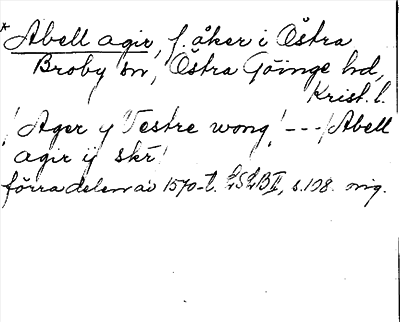 * Abell agir, f. åker i Östra
Broby sn, Östra Göinge hd,
Krist. l.
! Ager y Vestre wong! --- ! Abell
agir ij skr!
förra delen av 1570-t. LSLB II, s. 198. orig.